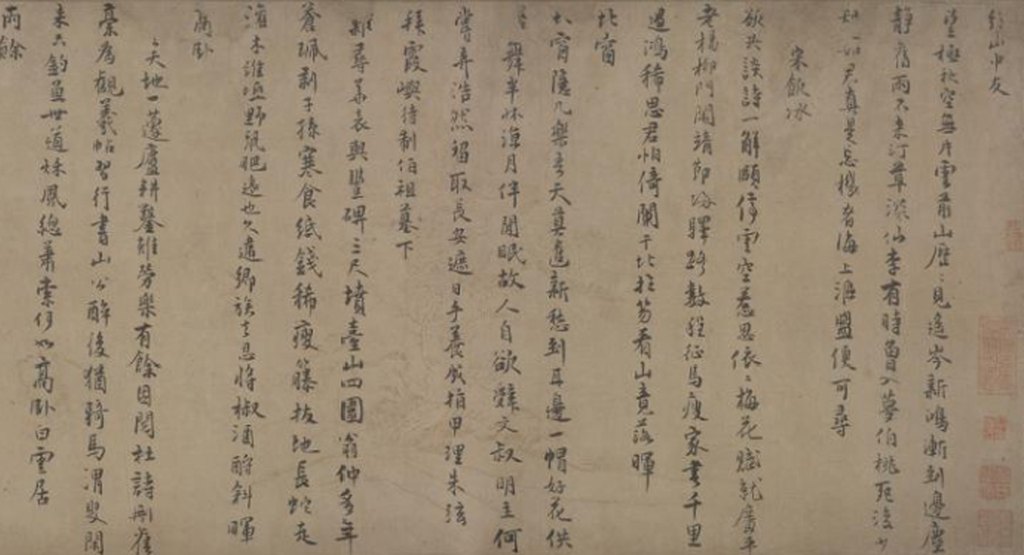 山中友
望極秋空無片雲前山歷〻見遙岑新鴻漸到邊塵
靜舊雨不來汀草深仙李有時曾入夢伯桃死後少
知心君真是忘機者海上漚盟便可尋
宋飲冰
欲共談詩一解頤停雲空惹思依〻梅花賦就廣平
老楊柳門閑靖節 驛路數程征馬瘦家書千里
過鴻稀思君怕倚闌干北拄笏看山 落暉
北窗
北窗隱几樂吾天莫遣新愁到耳邊一帽好花供
醉舞半林涼月伴閑眠故人自欲辭文叔明主何
嘗弃浩然招取長安遮日手養成指甲理朱絃
拜霞嶼待制伯祖墓下
難尋華表與豐碑三尺墳臺山四圍翁仲多年
蒼 剥子孫寒食紙錢稀瘦藤拔地長蛇走
木誰 野鼠肥遠 久違鄉族 息將椒酒酹斜暉
高卧
天地一蘧廬耕鑿雖勞樂有餘因閱杜詩刪舊
藁為觀羲帖習行書山公醉後猶騎馬渭叟閑
來只釣魚世道 風總蕭索何如高卧白雲居
雨餘